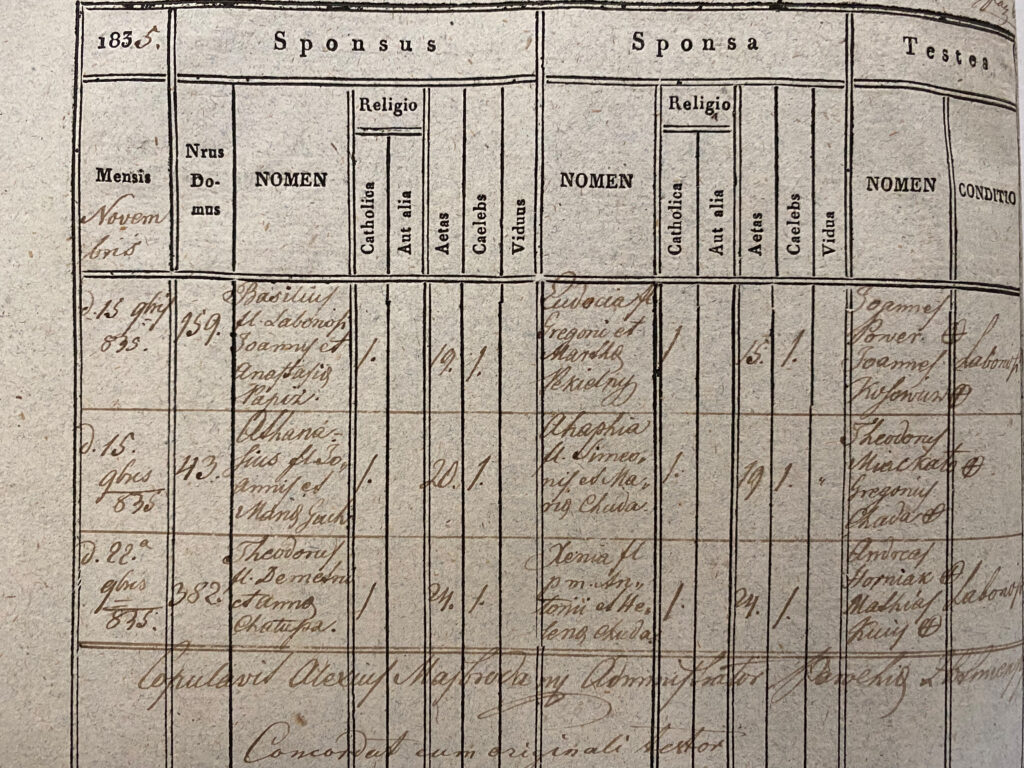 1835. Sponsus Sponsa Testes
Mensis Nrus Domus NOMEN Religio Catholica Aut alia Aetas Caelebs Viduus NOMEN Religio Catholica Aut alia Aetas Caelebs Vidua NOMEN CONDITIO
Novem
bris
d. 15 9bris
835.
159.
Basilius
fil. Laborios
Joannis et
Anastasiae
1.
19.
1.
Eudocia fil
Gregorii et
Marthae
Pekielny
1
15.
1.
Joannes
Power
Joannes
Laborios
d. 15.
9bris
835
43.
Athana-
sius fil Jo-
annis et
Mariae
1.
20.
1.
Ahaphia
fil. Simeo-
nis et Ma-
riae Chuda
1.
19
1.
Theodorus
Gregorius
Chuda
d. 22.a
9bris
835.
382.
Theodorus
fil. Demetrii
et Annae
1
24.
1.
Xenia fil
p. m. An-
tonii et He-
lenae Chuda
1.
24.
1.
Andreas
Horniak
Mathias
Laborios
Copulavit Alexius Administrator Parochiae
Concordat cum originali